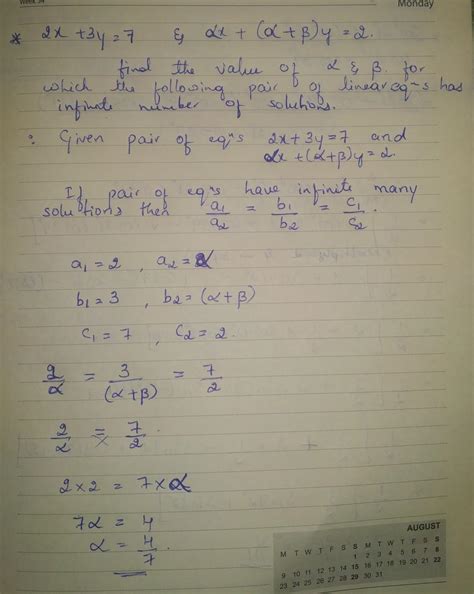 Monday
* 2x + 3y = 7 & αx + (α+β)y = 2.
find the value of α & β. for
which the following pair of linear eqⁿs has
infinite number of solutions.
: Given pair of eqⁿs 2x+3y=7 and
αx+(α+β)y=2.
If pair of eqⁿs have infinite many
solutions then a₁/a₂ = b₁/b₂ = c₁/c₂.
a₁ = 2 , a₂ = α
b₁ = 3 , b₂ = (α+β)
c₁ = 7 , c₂ = 2.
2/α = 3/(α+β) = 7/2
2/α = 7/2.
2×2 = 7×α
7α = 4
α = 4/7.
AUGUST
M T F S S M T W T F S S
1 2 3 4 5 6 7 8
9 10 11 12 13 14 15 16 17 18 19 20 21 22
23 24 25 26 27 28 29 30 31